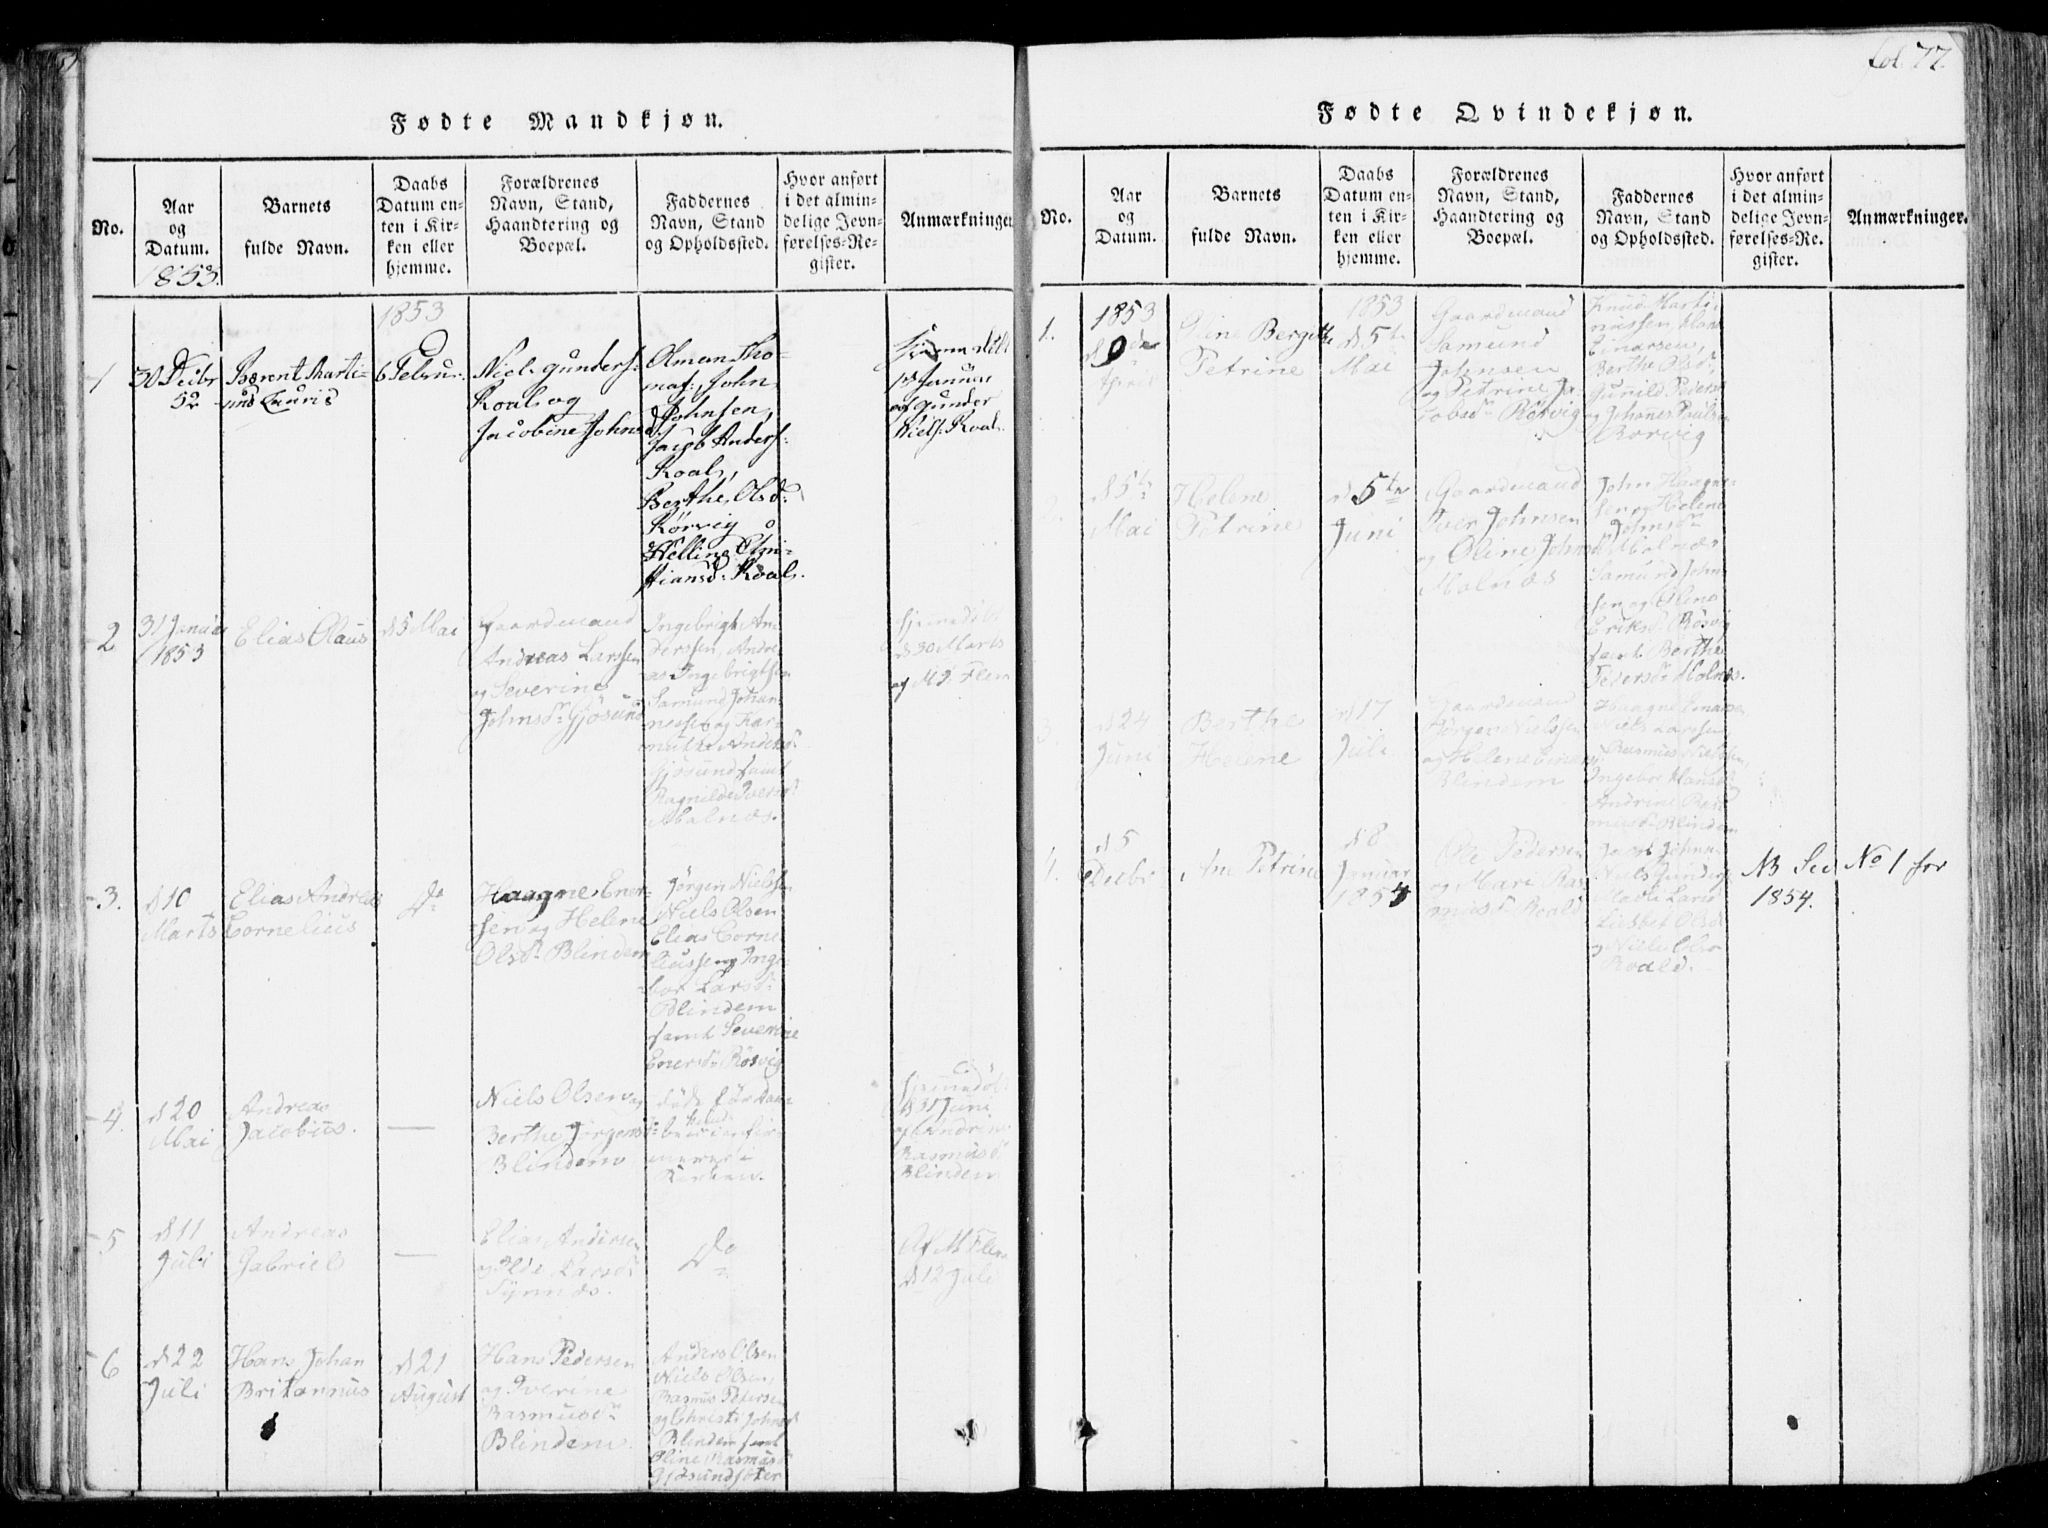 fol. 77.
Fødte Mandkjøn.
No.
Aar
og
Datum.
1853.
Barnets
fulde Navn.
Daabs
Datum en-
ten i Kir-
ken eller
hjemme.
Forældrenes
Navn, Stand,
Haandtering og
Boepæl.
Faddernes
Navn, Stand
og Opholdssted.
Hvor anført
i det almin-
delige Jevn-
førelses-Re-
gister.
Anmærkninger
1853
1
30 Decbr
52
Berent Marti-
nus Lauris
6 Februr.
Niels Gunders:
Roals og
Jacobine Johns
Olman Tho-
mas: John
Johnsen,
Jacob Anders:
Roals,
Berthe Olsd:
Rörvig
Helline
Roals.
hjemmedöbt
Januar
af Gunder
Niels: Roal.
2
31 Januar
1853
Elias Olaus
d 5 Mai
Gaardmand
Andreas Larssen
og Severine
Johnsdr Gjösund
Ingebrigt An-
derssen, Andre-
as Ingebrigtsen
Samund Johan-
nessen og Kar-
Andersdr
Gjösund samt
Ragnilde Iversd
Molnæs.
hjemmedöbt
d 30 Marts
af M. Flem
3.
d 10
Marts
Elias Andreas
Cornelius
Do
Haagne Ener-
sen og Helene
Olsdr Blindem
Jörgen Nielssen
Niels Olsen
Elias Corne-
liussen og Inge-
bor Larsdr
Blindem
samt Severine
Enersdr Rösvig
4.
d 20
Mai
Andreas
Jacobius.
—
Niels Olsen og
Berthe Jörgensdr
Blindem
död för
i
Kirken.
hjemmedöbt
Juni
af Andrine
Rasmusdr
Blindem
5
d 11
Juli
Andreas
Gabriel
—
Elias Andersen
og Ilde Larsdr
Synnæs.
Do
Af M Flem
d 12 Juli
6
d 22
Juli
Hans Johan
Britannus
d 21
August
Hans Pedersen
og Iverine
Rasmusdr
Blindem.
Anders Olsen
Niels Olsen,
Rasmus Petersen
og Johnsd
Blindem samt
Oline Rasmusdr
Gjösundsöter
Fødte Qvindekjøn.
No.
Aar
og
Datum.
Barnets
fulde Navn.
Daabs
Datum en-
ten i Kir-
ken eller
hjemme.
Forældrenes
Navn, Stand,
Haandtering og
Boepæl.
Faddernes
Navn, Stand
og Opholdssted.
Hvor anført
i det almin-
delige Jevn-
førelses-Re-
gister.
Anmærkninger.
1.
1853
April
Oline Bergithe
Petrine
1853
d 5te
Mai
Gaardmand
Samund
Johnsen
og Petrine Ja-
cobsdr Rösvig
Knud Marti-
nussen, Hans
Einarsen,
Berthe Olsdr,
Gunild Pedersd
og Johanes Paulsen
Rörvig
2.
d 5te
Mai
Helene
Petrine
d 5te
Juni
Gaardmand
Iver Johnsen
og Oline Johnsd
Molnæs
John Haagne-
sen og Helene
Johnsdr
Molnæs
Samund John-
sen og Oline
Eriksdr Rösvig
samt Berthe
Pedersdr Molnæs.
3.
d 24
Juni
Berthe
Helene
d 17
Juli
Gaardmand
Jörgen Nielssen
og Helene Einarsd
Blindem
Haagne Einarsen
Niels Larssen
Rasmus Nielssen,
Ingebor Hansdr
Andrine Ras-
musdr Blindem
4.
d 5
Decbr
Ane Petrine
d 8
Januar
1854
Ole Pedersen
og Mari Ras-
musdr Roald
Jacob Johnn-
Niels Gunders
Larsd
Lisbet Olsdr
og Niels Olsen
Roald.
NB See No 1 for
1854.